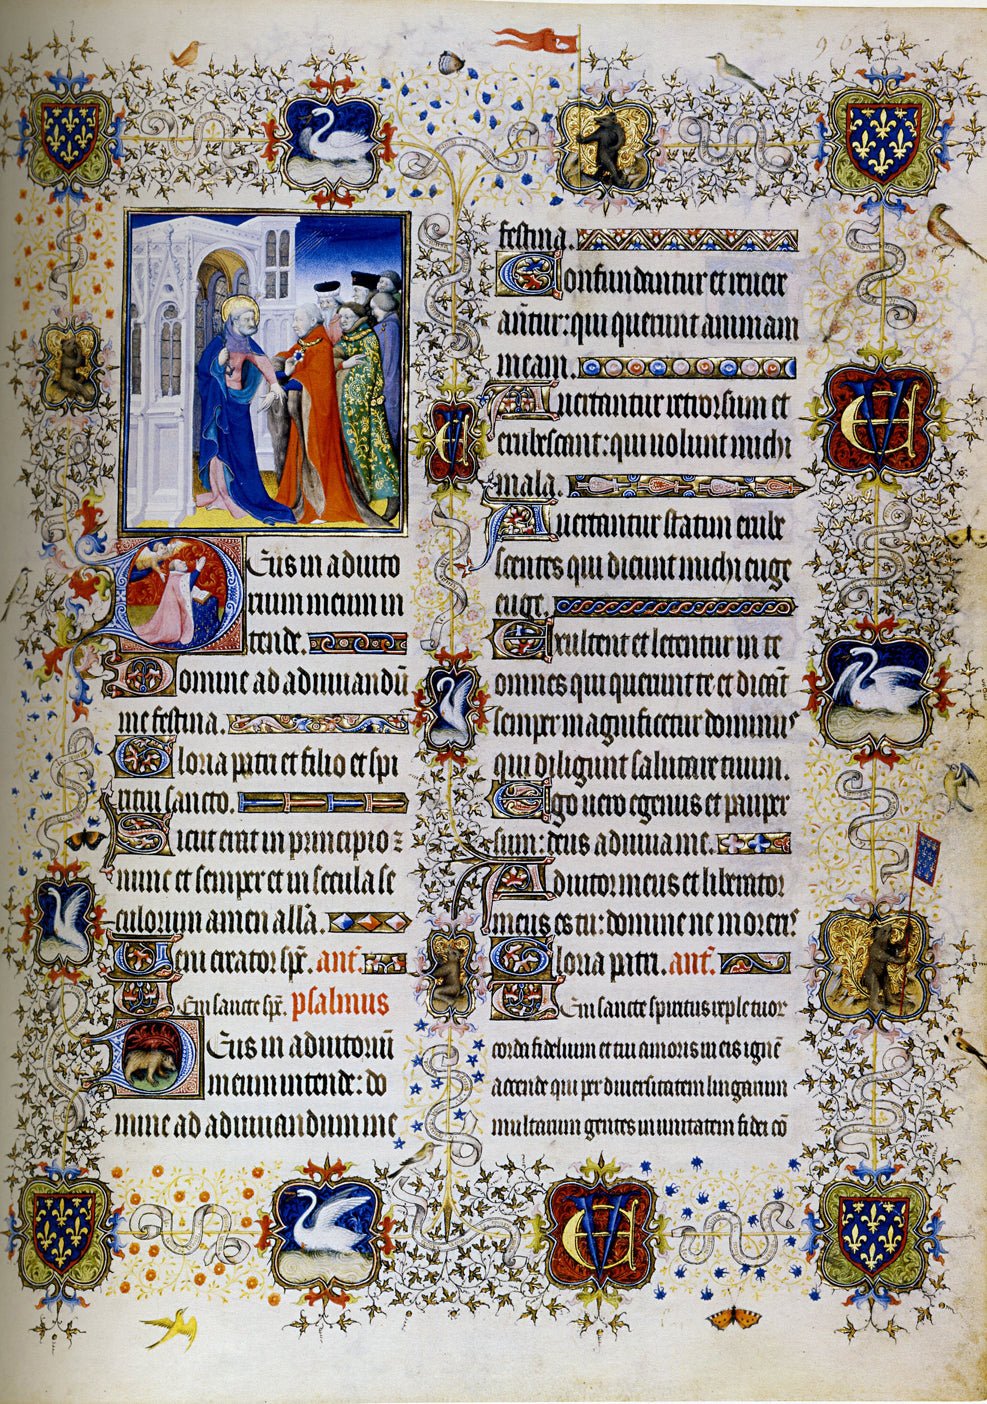 Eus in adiuto
rium meum in
tende.
Domine ad adiuuandū
me festina.
Gloria patri et filio et spi
ritui sancto.
Sicut erat in principio ꝛ
nunc et semper et in secula se
culorum amen allā.
Ueni creator sp̄. ant̄.
Ueni sancte sp̄. psalmus
Deus in adiutoriū
meum intende: do
mine ad adiuuandum me
festina.
Confundantur et reuere
antur: qui querunt animam
meam.
Auertantur retrorsum et
erubescant: qui uolunt michi
mala.
Auertantur statim erube
scentes qui dicunt michi euge
euge.
Exultent et letentur in te
omnes qui querunt te et dicāt
semper magnificetur dominus
qui diligunt salutare tuum.
Ego uero egenus et pauper
sum: deus adiuua me.
Adiutor meus et liberator
meus es tu: domine ne moreris
Gloria patri. ant̄.
Ueni sancte spiritus reple tuor
corda fidelium et tui amoris in eis ignē
accende qui per diuersitatem linguarum
multarum gentes in unitatem fidei cō